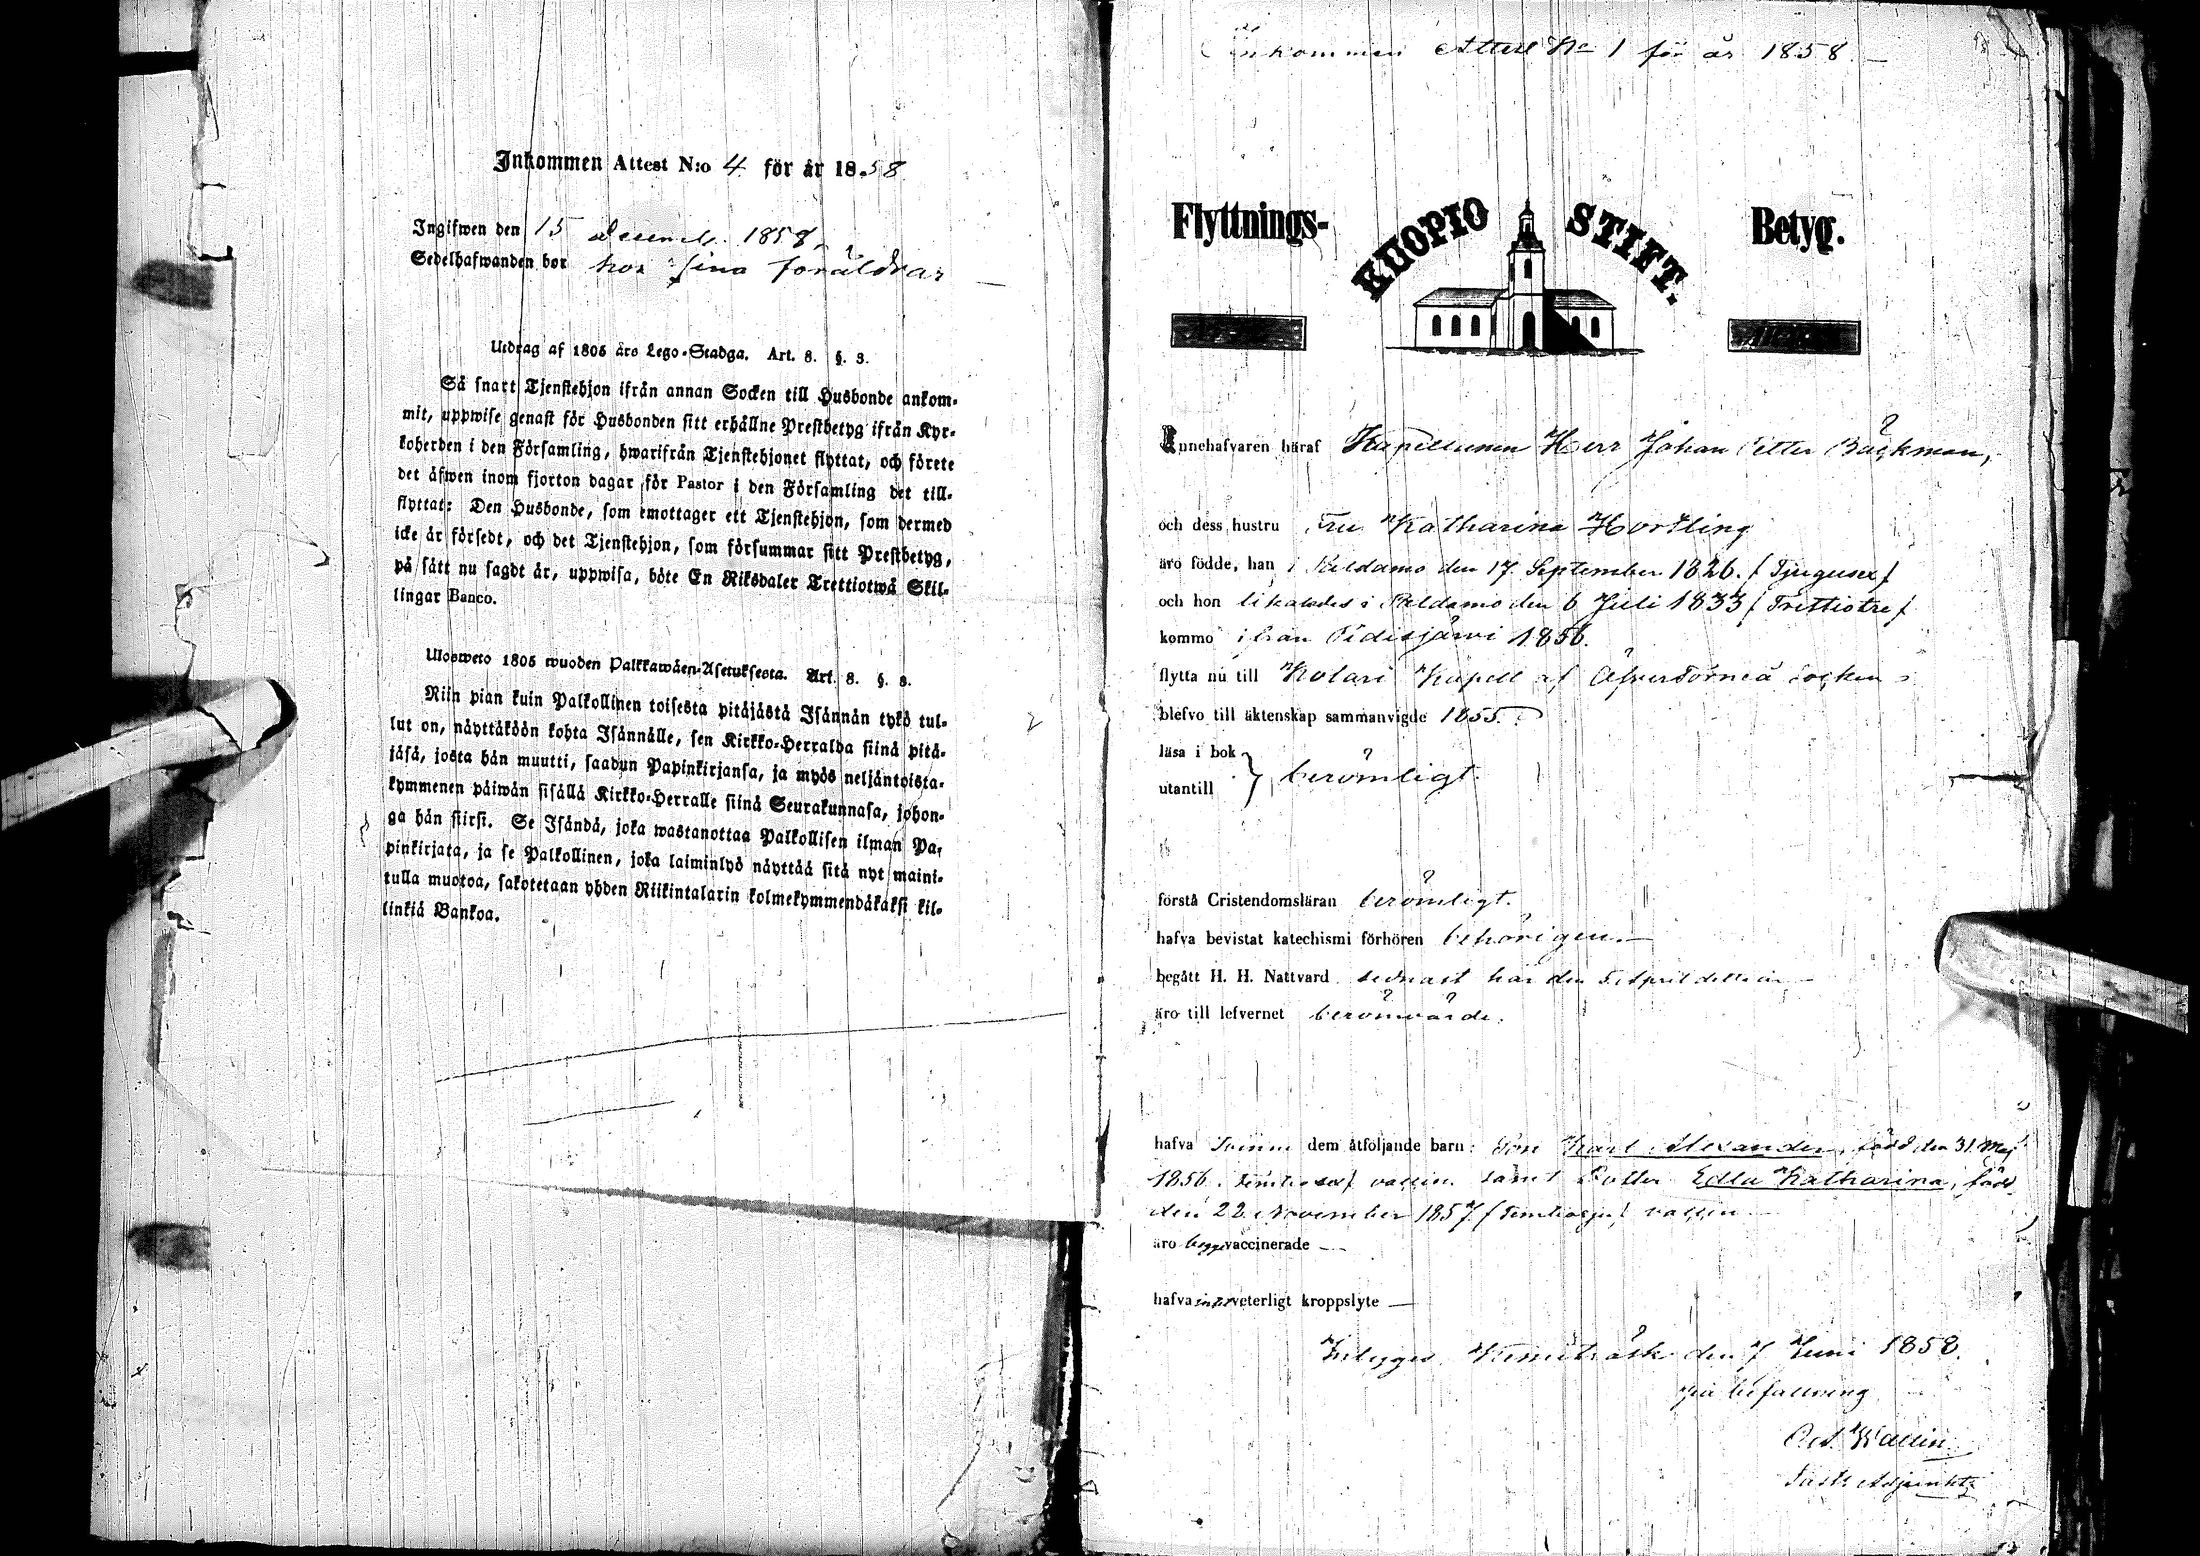 Inkommen Attest N:o 4 för år 1858
Ingifwen den 15 Decemb. 1858.
Sedelhafwanden bor hos sina föräldrar
Utdrag af 1805 års Lego-Stadga. Art. 8. §. 3.
Så snart Tjenstehjon ifrån annan Socken till Husbonde ankom-
mit, uppwise genast för Husbonden sitt erhållne Prestbetyg ifrån Kyr-
koherden i den Församling, hwarifrån Tjenstehjonet flyttat, och förete
det äfwen inom fjorton dagar för Pastor i den Församling det till-
flyttat: Den Husbonde, som emottager ett Tjenstehjon, som dermed
icke är försedt, och det Tjenstehjon, som försummar sitt Prestbetyg,
på sätt nu sagdt är, uppwisa, böte En Riksdaler Trettiotwå Skil-
lingar Banco.
Ulosweto 1805 wuoden Palkkawäen-Asetuksesta. Art. 8. §. 3.
Niin pian kuin Palkollinen toisesta pitäjästä Isännän tykö tul-
lut on, näyttäköön kohta Isännälle, sen Kirkko-Herralda siinä pitä-
jäsä, josta hän muutti, saadun Papinkirjansa, ja myös neljäntoista-
kymmenen päiwän sisällä Kirkko-Herralle siinä Seurakunnasa, johon-
ga hän siirsi. Se Isändä, joka wastanottaa Palkollisen ilman Pa-
pinkirjata, ja se Palkollinen, joka laiminlyö näyttää sitä nyt maini-
tulla muotoa, sakotetaan yhden Riikintalarin kolmekymmendäkaksi kil-
linkiä Bankoa.
Inkommen Attest No 1 för år 1858.
Flyttnings- KUOPIO STIFT. Betyg.
Innehafvaren häraf Kapellanen Herr Johan Petter Bäckman,
och dess hustru Fru Katharina Hortling
äro födde, han i Paldamo den 17 September 1826. / Tjugusex /
och hon likaledes i Paldamo den 6 Juli 1833 / Trettiotre /
kommo ifrån Pidisjärwi 1856.
flytta nu till Kolari Kapell af Öfvertorneå Socken
blefvo till äktenskap sammanvigde 1855.
läsa i bok
utantill } berömligt.
förstå Cristendomsläran berömligt.
hafva bevistat katechismi förhören behörigen.
begått H. H. Nattvard sednast här den 5 April detta år
äro till lefvernet berömvärde.
hafva tvenne dem åtföljande barn: Son Karl Alexander, född den 31 Maj
1856 / femtiosex / vaccin. samt Dotter Edla Katharina, född
den 22 November 1857 / femtiosju / vaccin
äro begge vaccinerade
hafva intet veterligt kroppslyte
betygas Kemiträsk den 7 Juni 1858.
på befallning
Wallin.
Past. Adjunkt